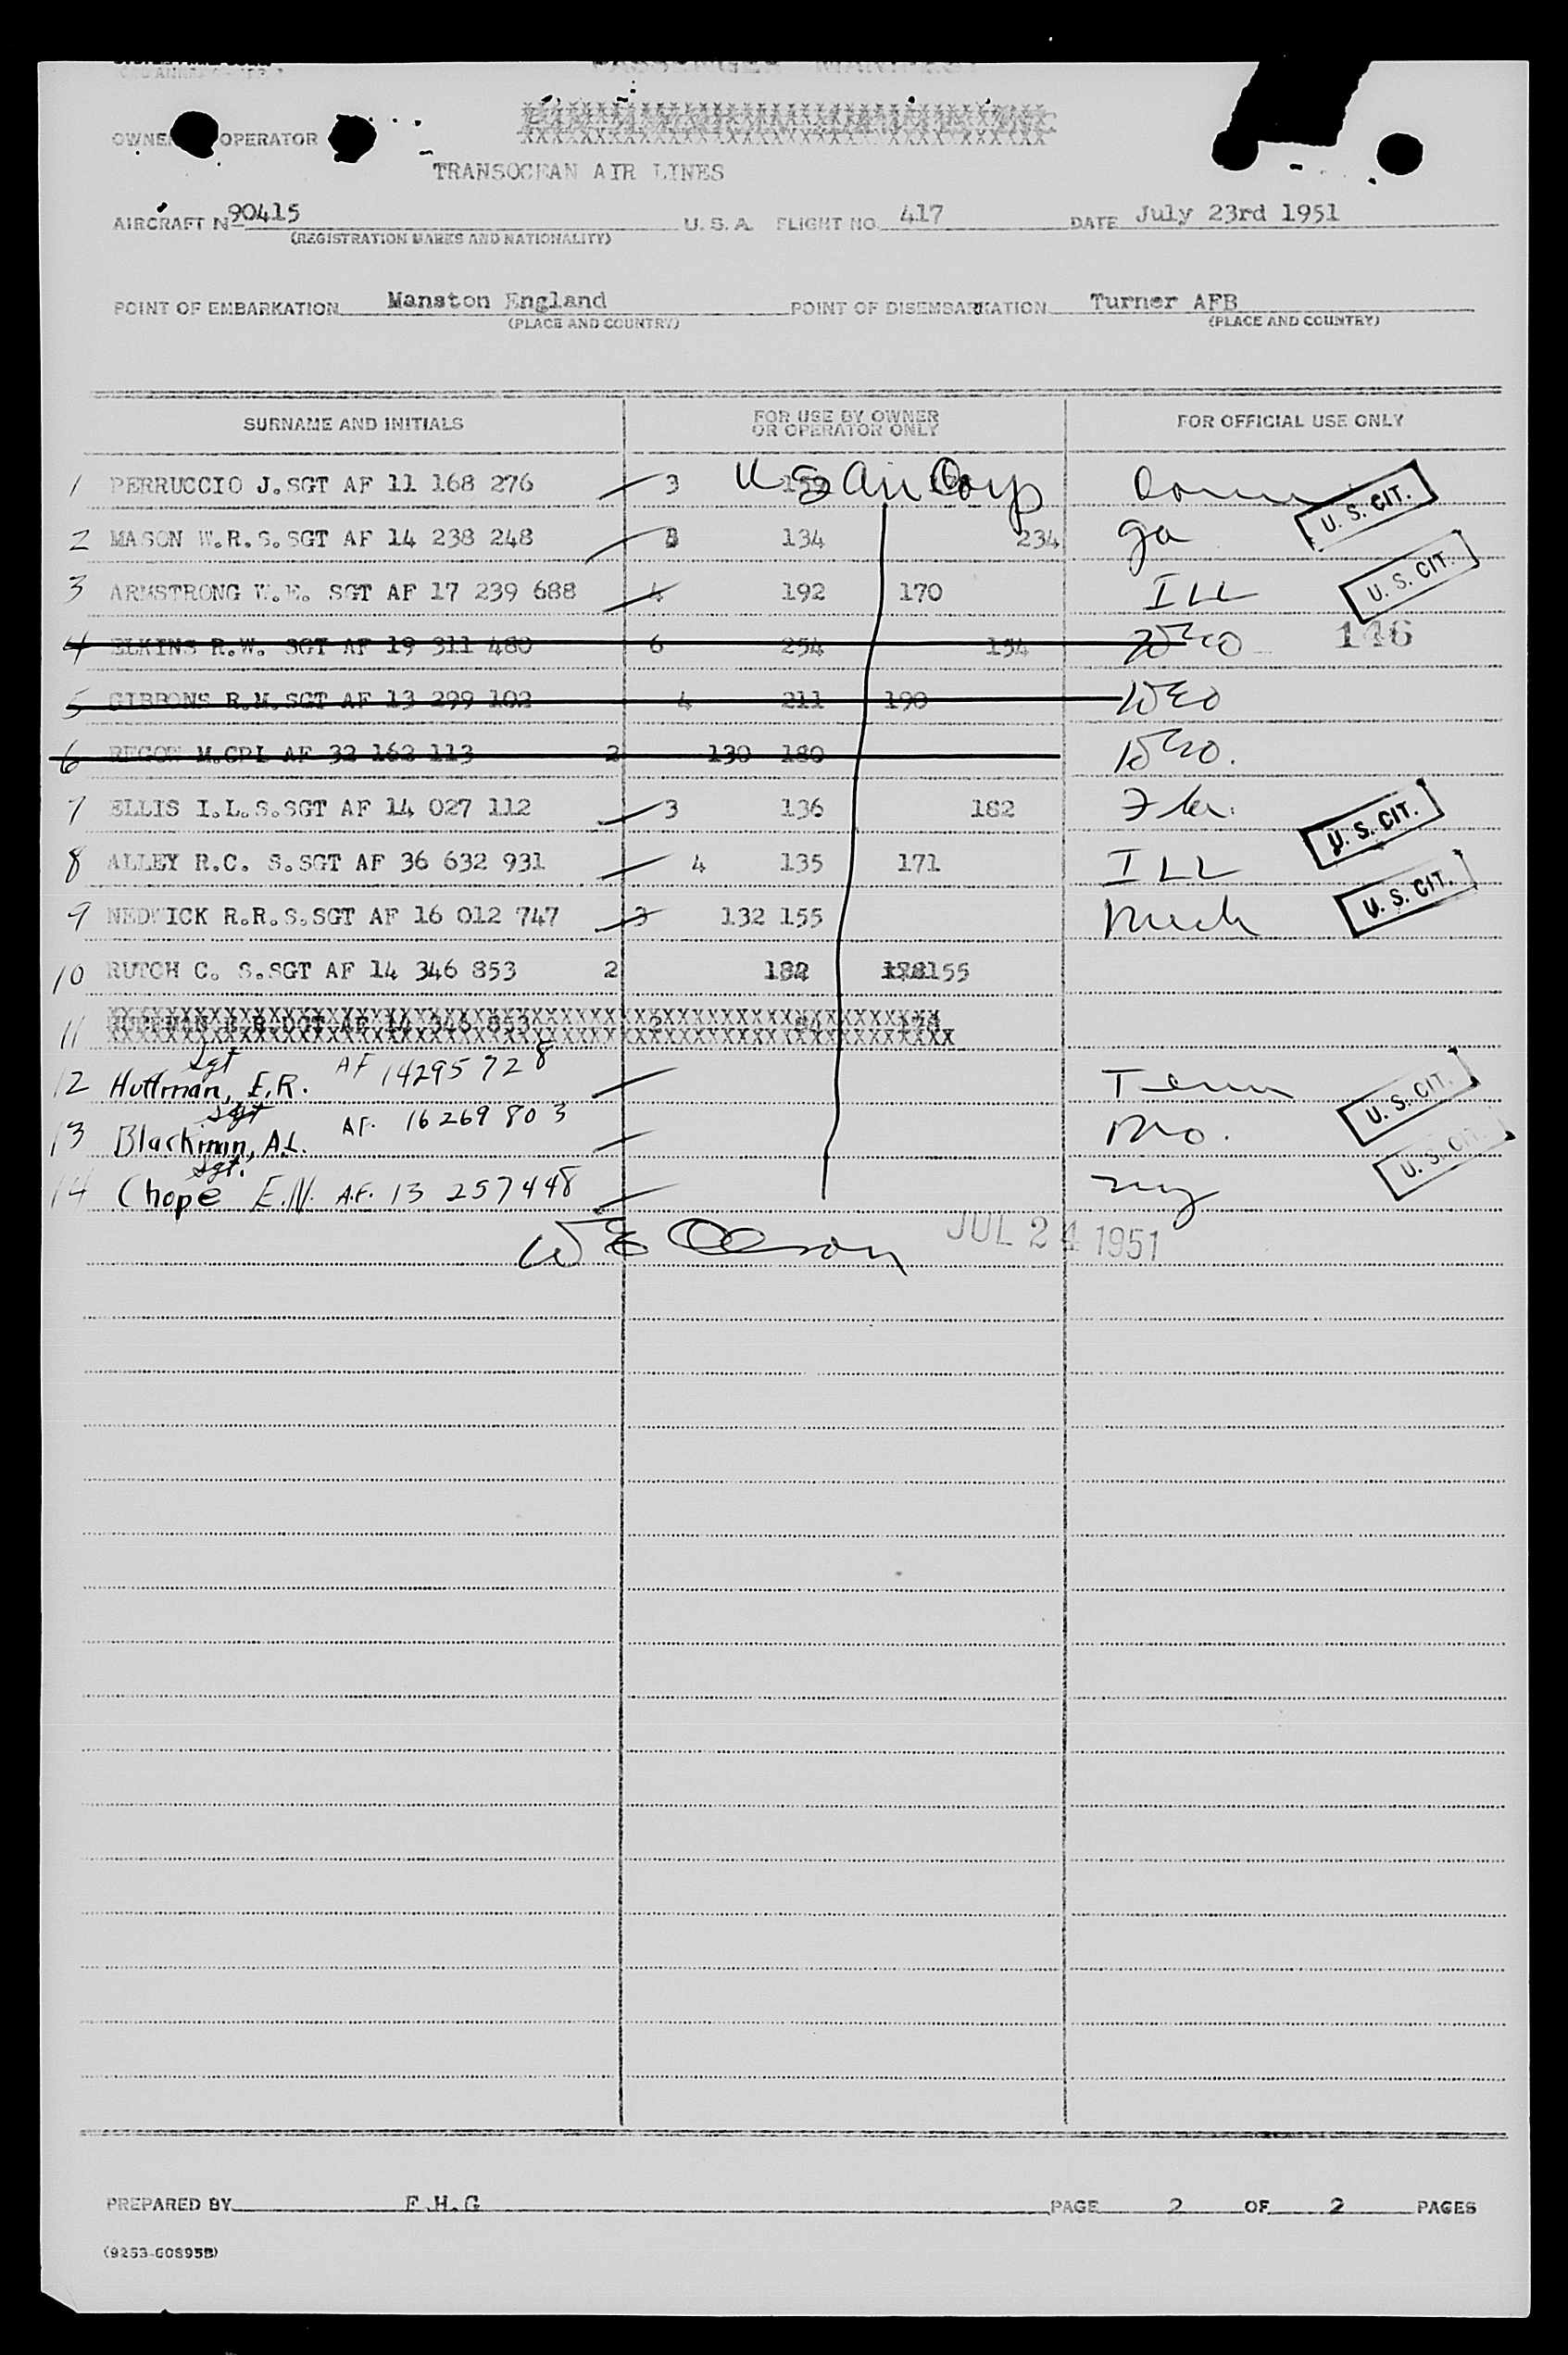 PASSENGER MANIFEST
OWNER OPERATOR
TRANSOCEAN AIR LINES
AIRCRAFT No 90415 U. S. A. FLIGHT NO. 417 DATE July 23rd 1951
(REGISTRATION MARKS AND NATIONALITY)
POINT OF EMBARKATION Manston England POINT OF DISEMBARKATION Turner AFB
(PLACE AND COUNTRY) (PLACE AND COUNTRY)
SURNAME AND INITIALS FOR USE BY OWNER OR OPERATOR ONLY FOR OFFICIAL USE ONLY
1 PERRUCCIO J.SGT AF 11 168 276 3 159 U S Air Corp U. S. CIT.
2 MASON W.R.S.SGT AF 14 238 248 3 134 234 Ga
3 ARMSTRONG W.E. SGT AF 17 239 688 4 192 170 ILL U. S. CIT.
4 ELKINS R.W. SGT AF 19 311 480 6 254 154 WEO 146
5 GIBBONS R.M.SGT AF 13 299 102 4 211 190 WEO
6 M.CPL AF 32 162 113 2 130 180 WEO.
7 ELLIS I.L.S.SGT AF 14 027 112 3 136 182 Fla. U. S. CIT.
8 ALLEY R.C. S.SGT AF 36 632 931 4 135 171 ILL
9 NEDWICK R.R.S.SGT AF 16 012 747 3 132 155 Mich U. S. CIT.
10 RUTCH C. S.SGT AF 14 346 853 2 155
11 AF 14 346 853 2
12 Huffman, E.R. Sgt AF 14295728 Tenn U. S. CIT.
13 Blackman, A.L. Sgt AF. 16 269 803 Mo. U. S. CIT.
14 Chope E.N. Sgt. A.F. 13 257448 NY
W E Olson JUL 24 1951
PREPARED BY F.H.G PAGE 2 OF 2 PAGES
(9253-G0895B)